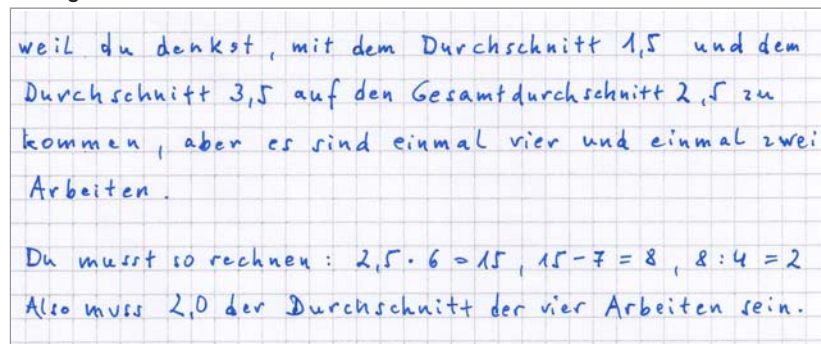 weil du denkst, mit dem Durchschnitt 1,5 und dem
Durchschnitt 3,5 auf den Gesamtdurchschnitt 2,5 zu
kommen, aber es sind einmal vier und einmal zwei
Arbeiten.
Du musst so rechnen: 2,5 · 6 = 15, 15 - 7 = 8, 8 : 4 = 2
Also muss 2,0 der Durchschnitt der vier Arbeiten sein.